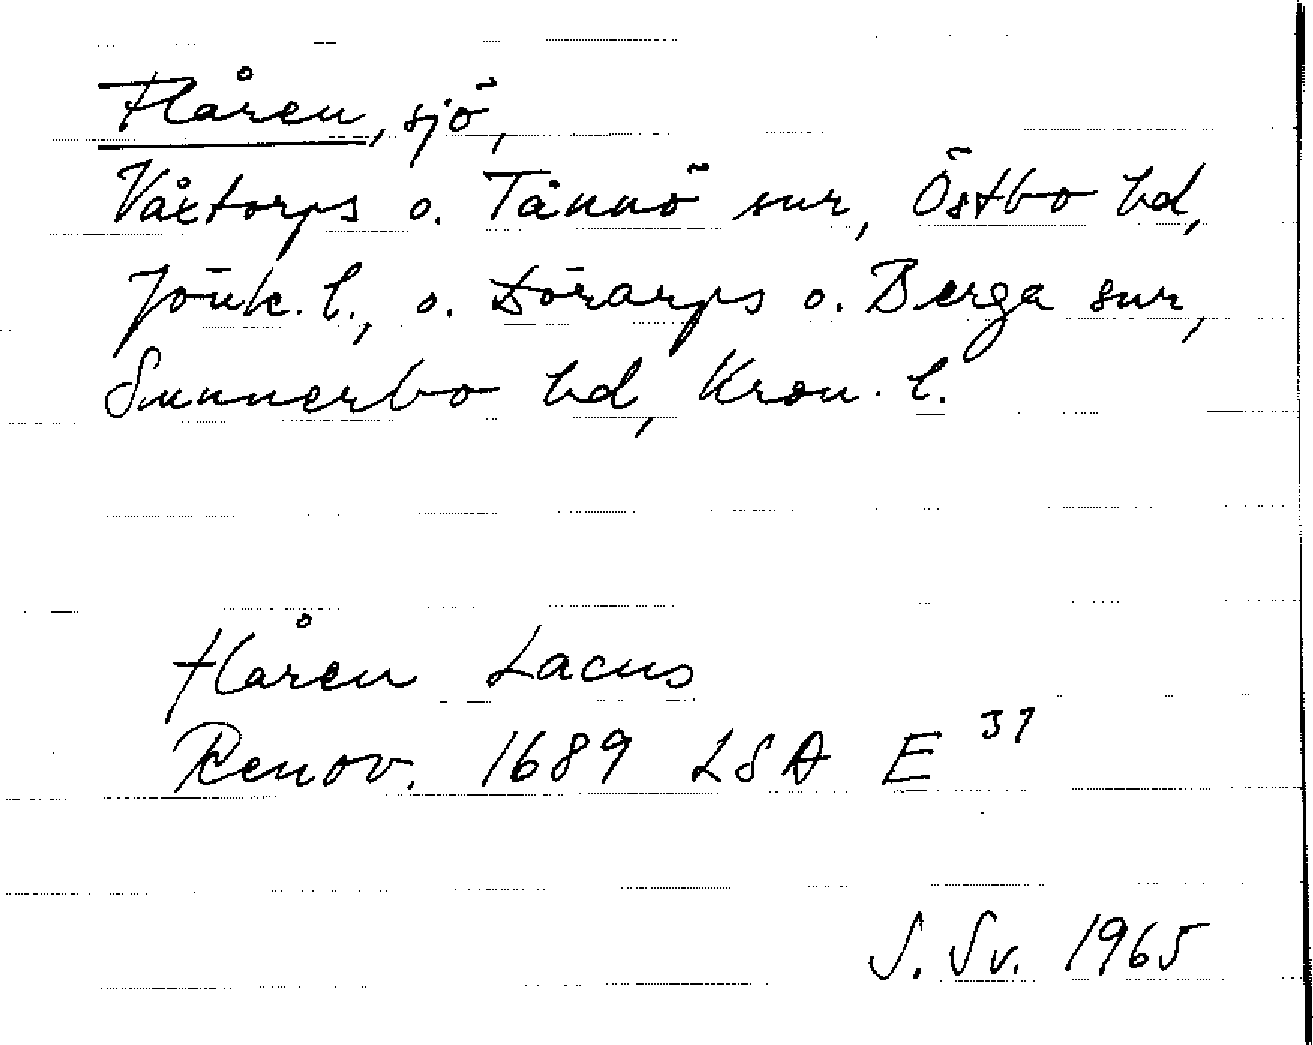 Flåren, sjö,
Våxtorps o. Tånnö snr, Östbo hd,
Jönk. l., o. Dörarps o. Berga snr,
Sunnerbo hd, Kron. l.
flåren Lacus
Renov. 1689 LSA E 37
S. Sv. 1965